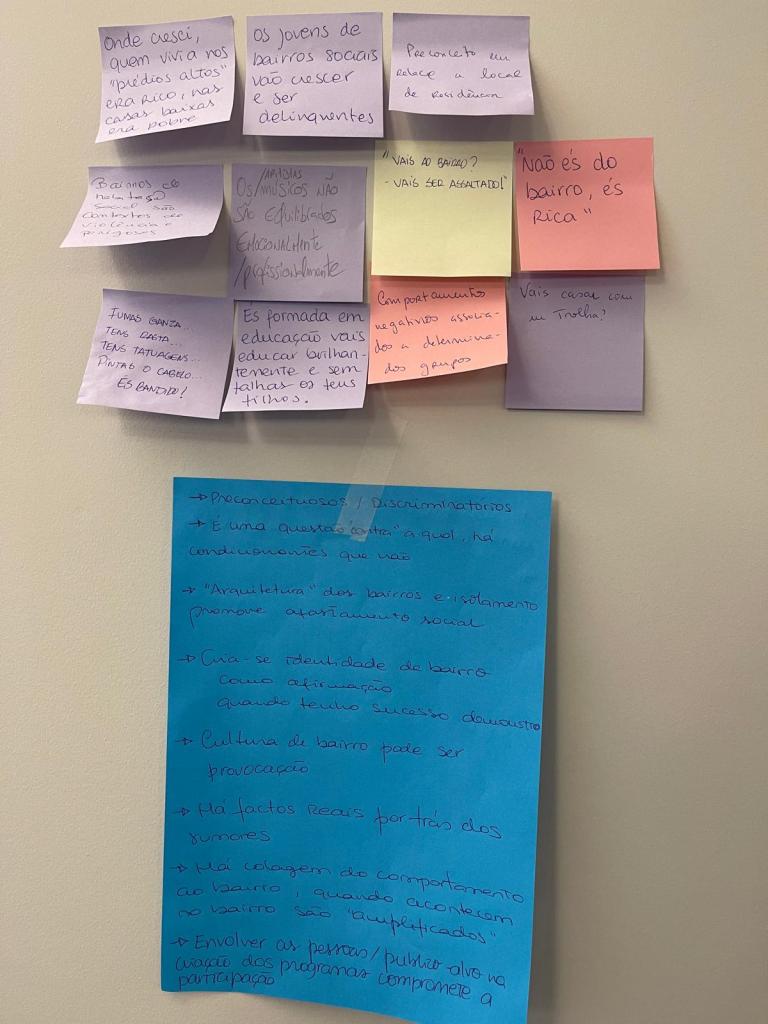 Onde cresci,
quem vivia nos
"prédios altos"
era rico, nas
casas baixas
era pobre
Os jovens de
bairros sociais
vão crescer
e ser
delinquentes
Preconceito em
relação a local
de Residência
Bairros de
habitação
social são
contextos de
violência e
perigosos
/ARTISTAS
Os/músicos NÃO
SÃO EQUILIBRADOS
EMOCIONALMENTE
/profissionalmente
"VAIS AO BAIRRO?
- VAIS SER ASSALTADO!"
"Não és do
bairro, és
Rica"
FUMAS GANZA...
TENS RASTA...
TENS TATUAGENS...
PINTAS O CABELO...
ÉS BANDIDO!
És formada em
educação vais
educar brilhan-
temente e sem
falhas os teus
filhos.
Comportamentos
negativos associa-
dos a determina-
dos grupos
Vais casar com
um Trolha?
→ Preconceituosos / Discriminatórios
→ É uma questão "contra" a qual, há
condicionantes que não
→ "Arquitetura" dos bairros e isolamento
promove afastamento social
→ Cria-se identidade de bairro
como afirmação
quando tenho sucesso demonstro
→ Cultura de bairro pode ser
provocação
→ Há factos Reais por trás dos
rumores
→ Há colagem do comportamento
ao bairro, quando acontecem
no bairro são "amplificados"
→ Envolver as pessoas/publico-alvo na
criação dos programas compromete a
participação